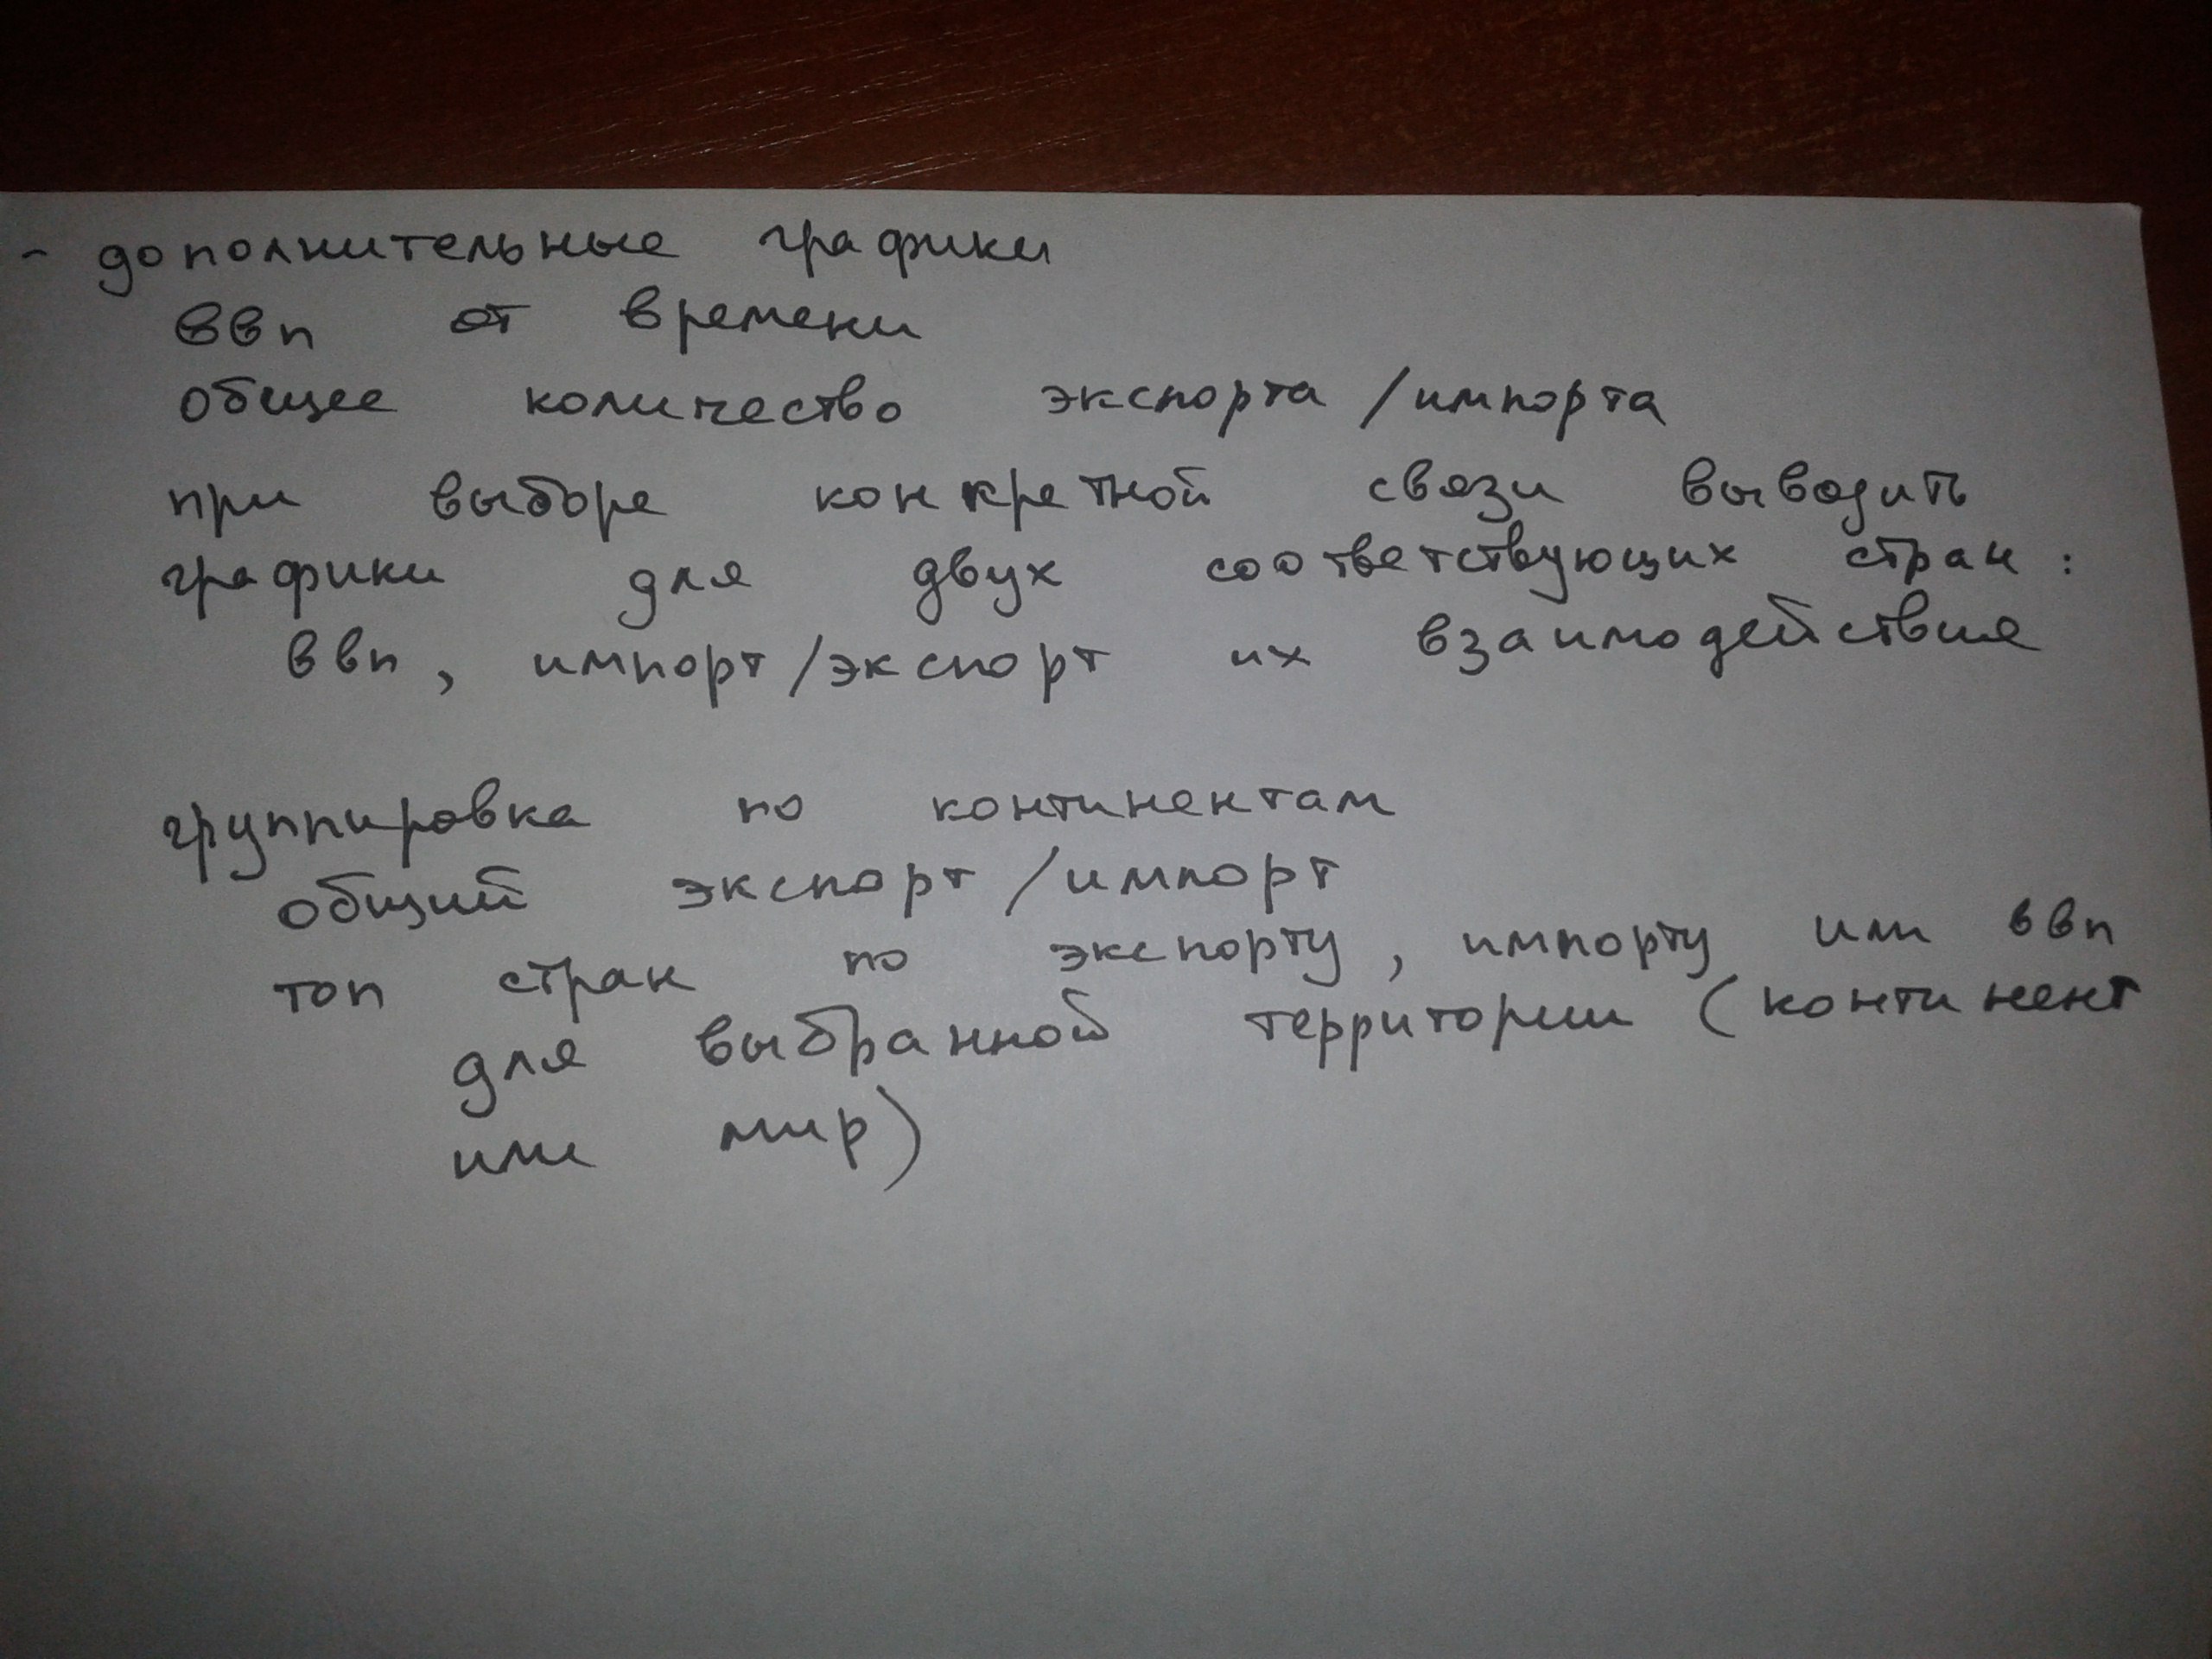 - дополнительные графики
ввп от времени
общее количество экспорта / импорта
при выборе конкретной связи выводить
графики для двух соответствующих стран :
ввп, импорт/экспорт их взаимодействия
группировка по континентам
общий экспорт / импорт
топ стран по экспорту, импорту или ввп
для выбранной территории (континент
или мир)